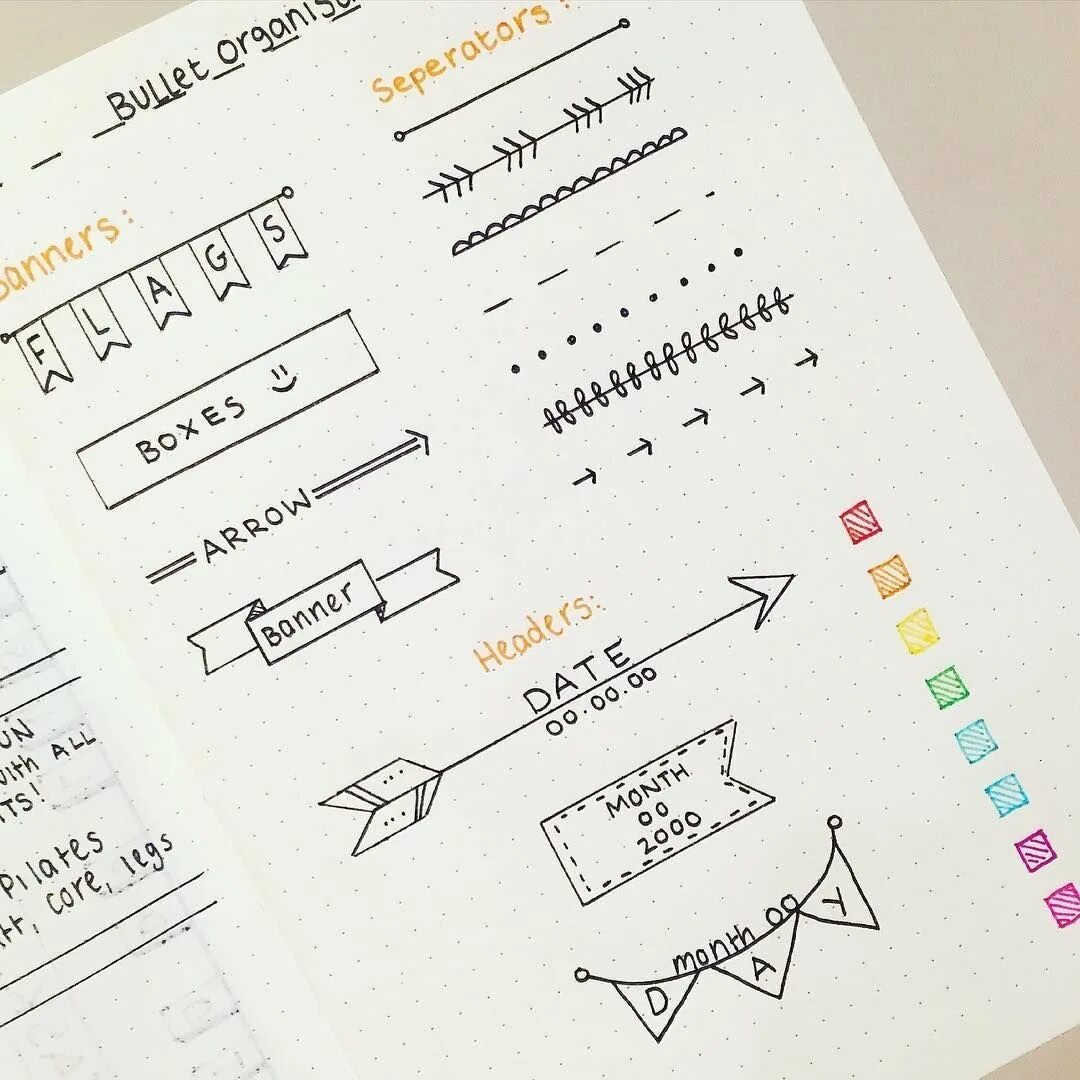 Bullet Organis
Seperators:
Banners:
FLAGS
BOXES
ARROW
Banner
Headers:
DATE
00.00.00
MONTH
00
2000
month 00
DAY
with ALL
Pilates
core, legs